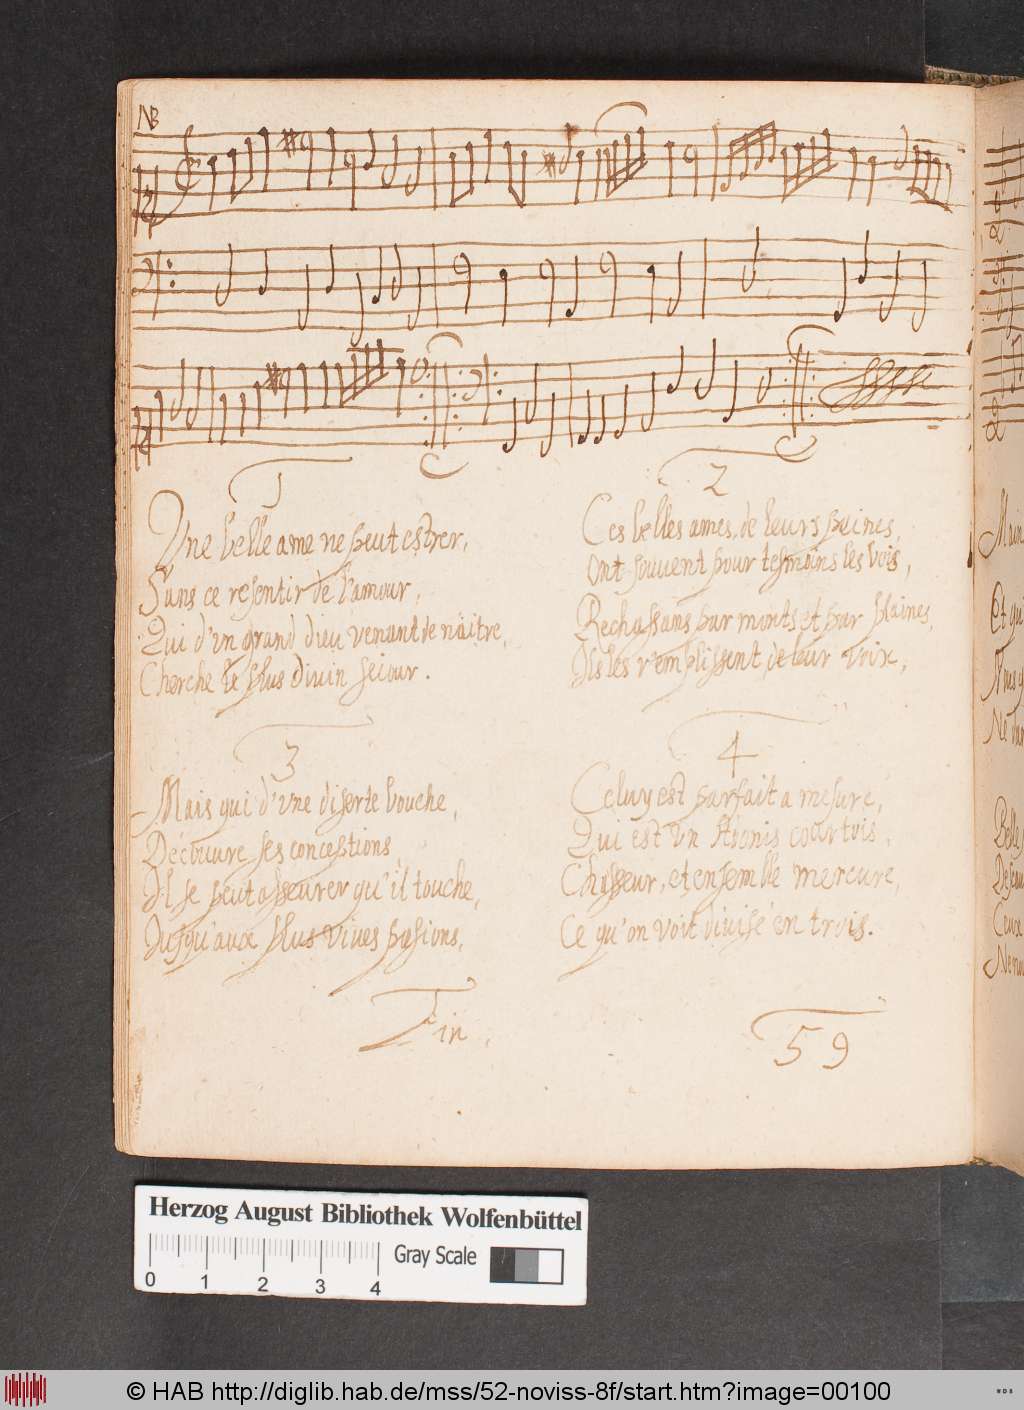 NB
1
Une belle ame ne peut estrer,
Sans ce resentir de l'amour,
Qui d'vn grand dieu venant de näitre,
Cherche le plus divin seiour.
2
Ces belles ames, de leurs peines,
Ont souvent pour tesmoins les bois,
Rechassans par monts et par plaines,
Ils les remplissent de leur voix,
3
Mais qui d'vne diserte bouche,
Decouure ses conceptions
Il se peut asseurer qu'il touche,
Jusqu'aux plus viues pasions,
4
Celuy est parfait a mesure,
Qui est vn Adonis courtois,
Chasseur, et ensemble mercure,
Ce qu'on voit divisé en trois.
Fin,
59
Herzog August Bibliothek Wolfenbüttel
Gray Scale
0 1 2 3 4
© HAB http://diglib.hab.de/mss/52-noviss-8f/start.htm?image=00100